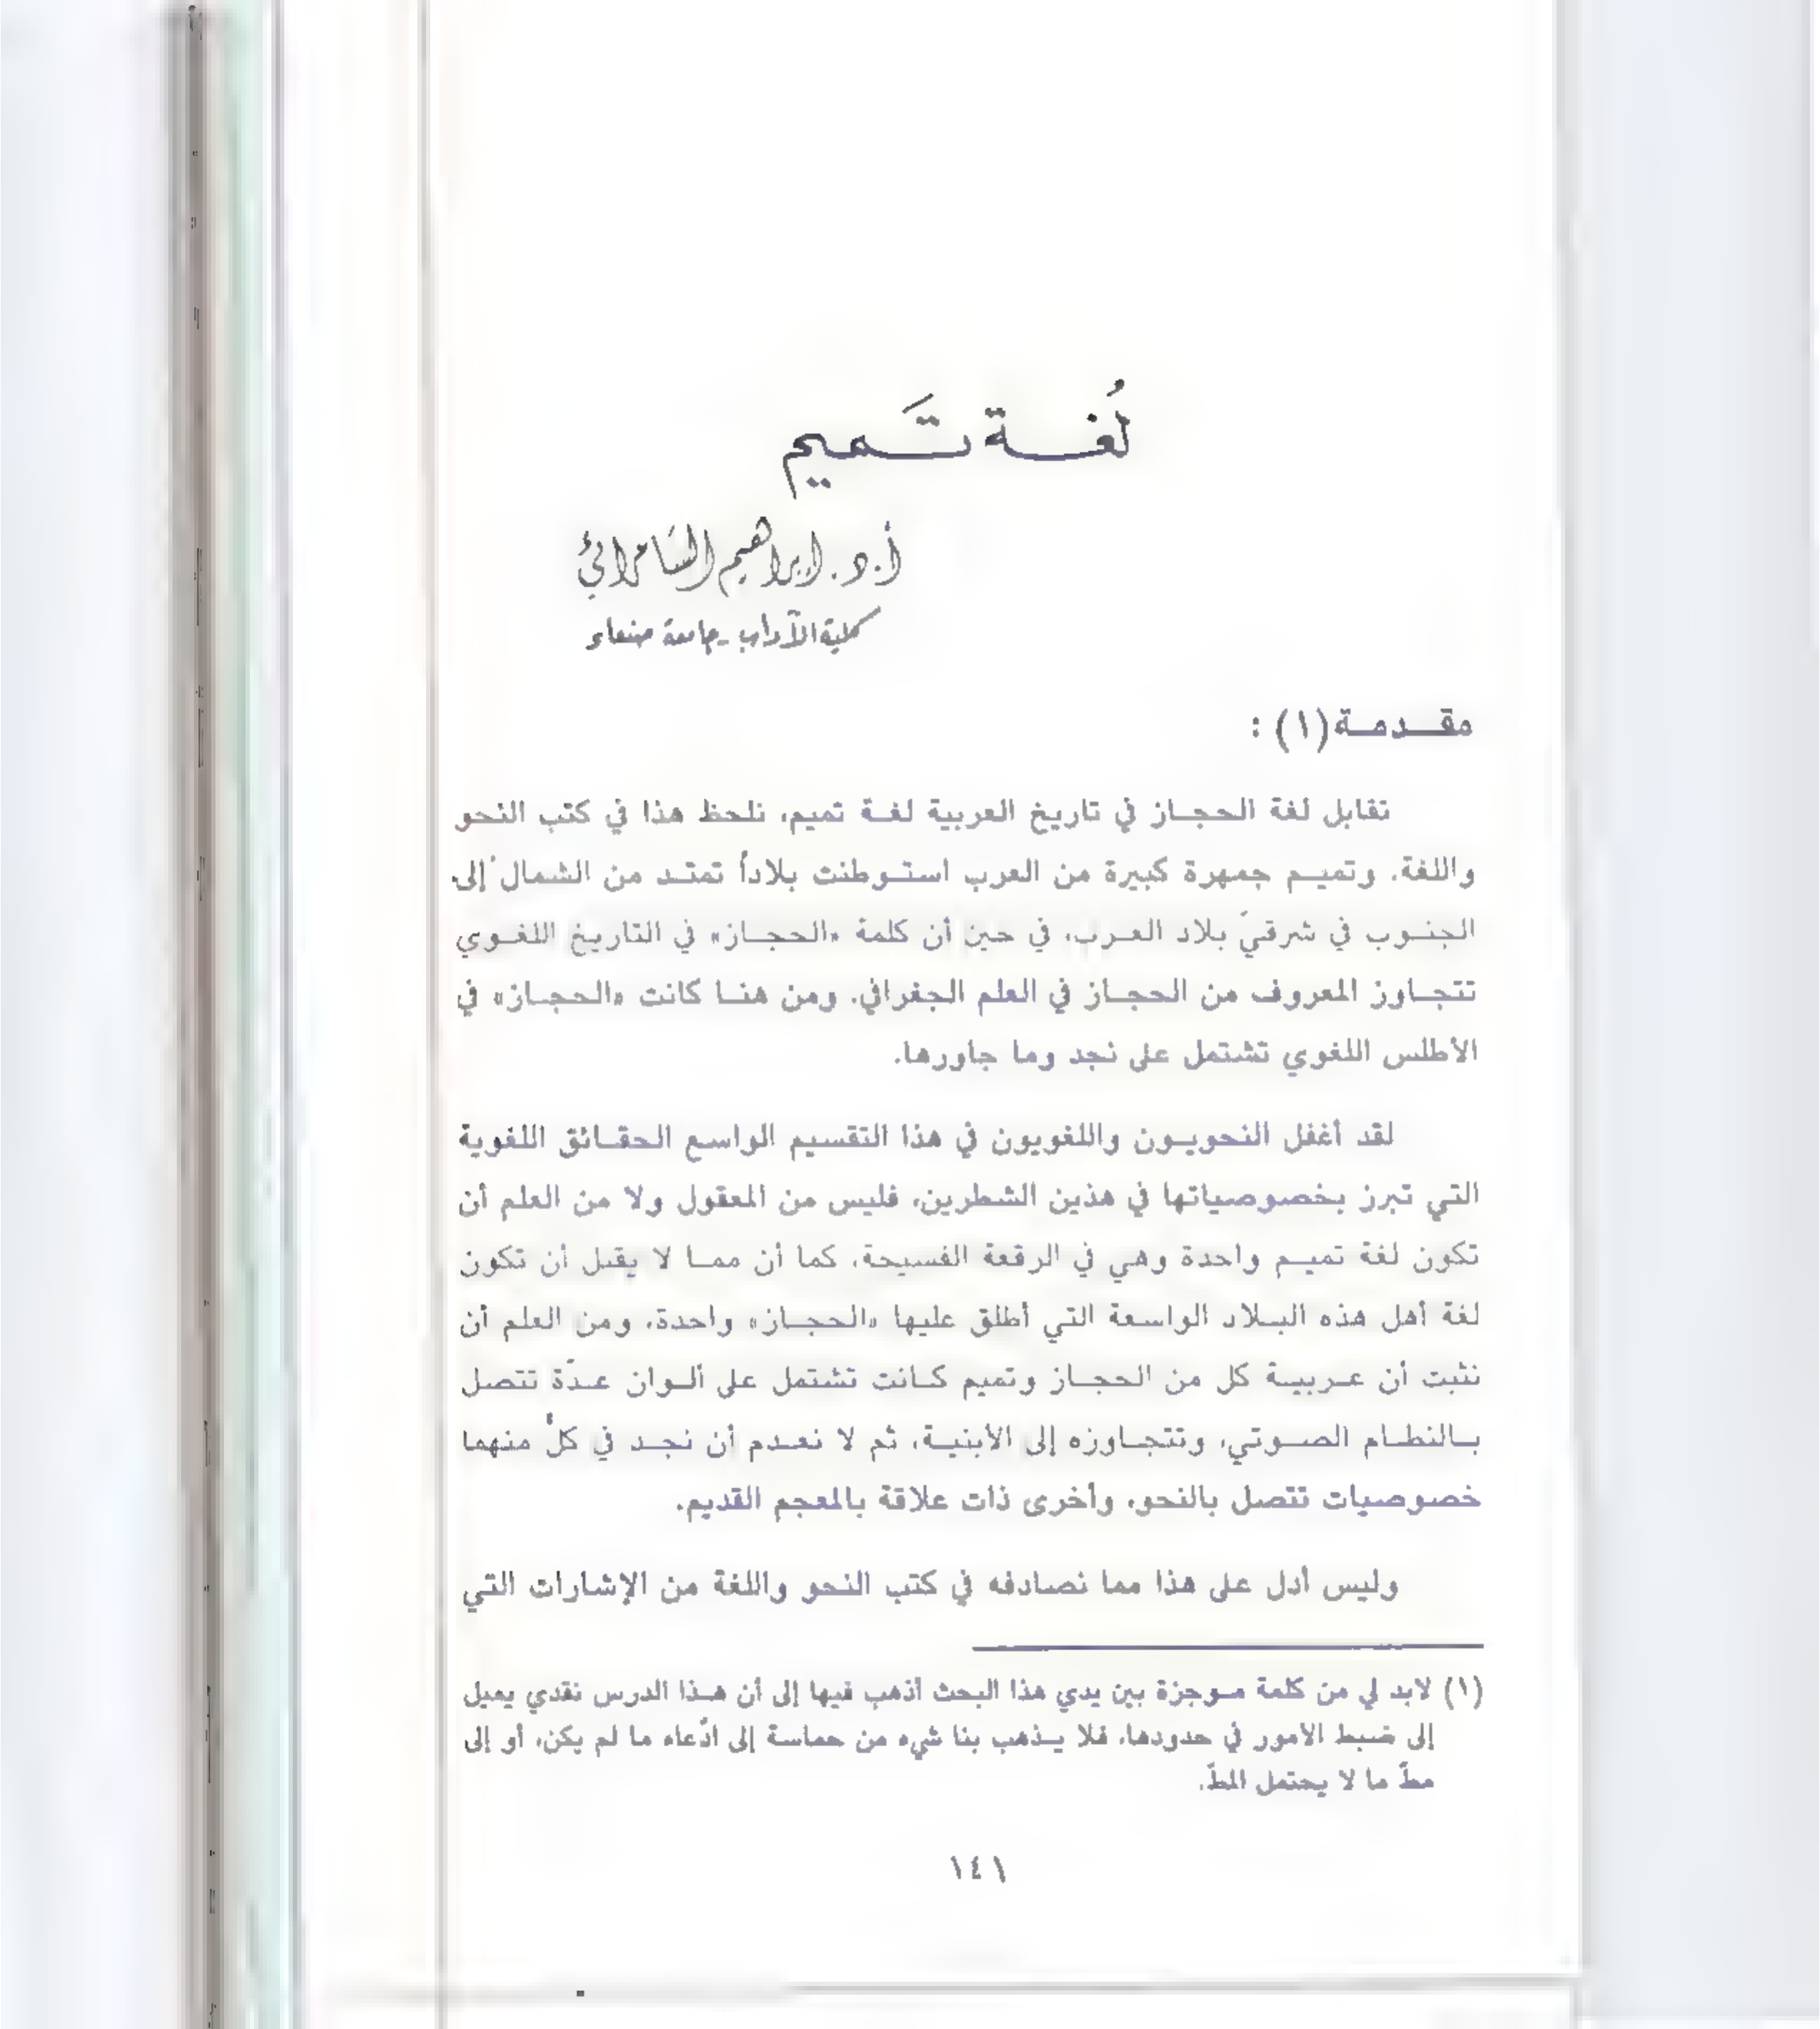 لُغـــة تَـــميم
أ. د. إبراهيم السَّامرائي
كلية الآداب - جامعة صنعاء
مقــدمــة (١) :
تقابل لغة الحجـاز في تاريخ العربية لغـة تميم، نلحظ هذا في كتب النحو
واللغة. وتميـم جمهرة كبيرة من العرب استـوطنت بلاداً تمتـد من الشمال إلى
الجنـوب في شرقيّ بلاد العـرب، في حين أن كلمة «الحجـاز» في التاريخ اللغـوي
تتجـاوز المعروف من الحجـاز في العلم الجغرافي. ومن هنـا كانت «الحجـاز» في
الأطلس اللغوي تشتمل على نجد وما جاورها.
لقد أغفل النحويـون واللغويون في هذا التقسيم الواسع الحقـائق اللغوية
التي تبرز بخصوصياتها في هذين الشطرين، فليس من المعقول ولا من العلم أن
تكون لغة تميـم واحدة وهي في الرقعة الفسيحة، كما أن ممـا لا يقبل أن تكون
لغة أهل هذه البـلاد الواسعة التي أطلق عليها «الحجـاز» واحدة، ومن العلم أن
نثبت أن عـربيـة كل من الحجـاز وتميم كـانت تشتمل على ألـوان عـدّة تتصل
بـالنطـام الصـوتي، وتتجـاوزه إلى الأبنيـة، ثم لا نعـدم أن نجـد في كلٍّ منهما
خصوصيات تتصل بالنحو، وأخرى ذات علاقة بالمعجم القديم.
وليس أدل على هذا مما نصادفه في كتب النحو واللغة من الإشارات التي
(١) لابد لي من كلمة مـوجزة بين يدي هذا البحث أذهب فيها إلى أن هـذا الدرس نقدي يميل
إلى ضبط الأمور في حدودها، فلا يـذهب بنا شيء من حماسة إلى ادّعاء ما لم يكن، أو إلى
مطّ ما لا يحتمل المطّ.
١٤١